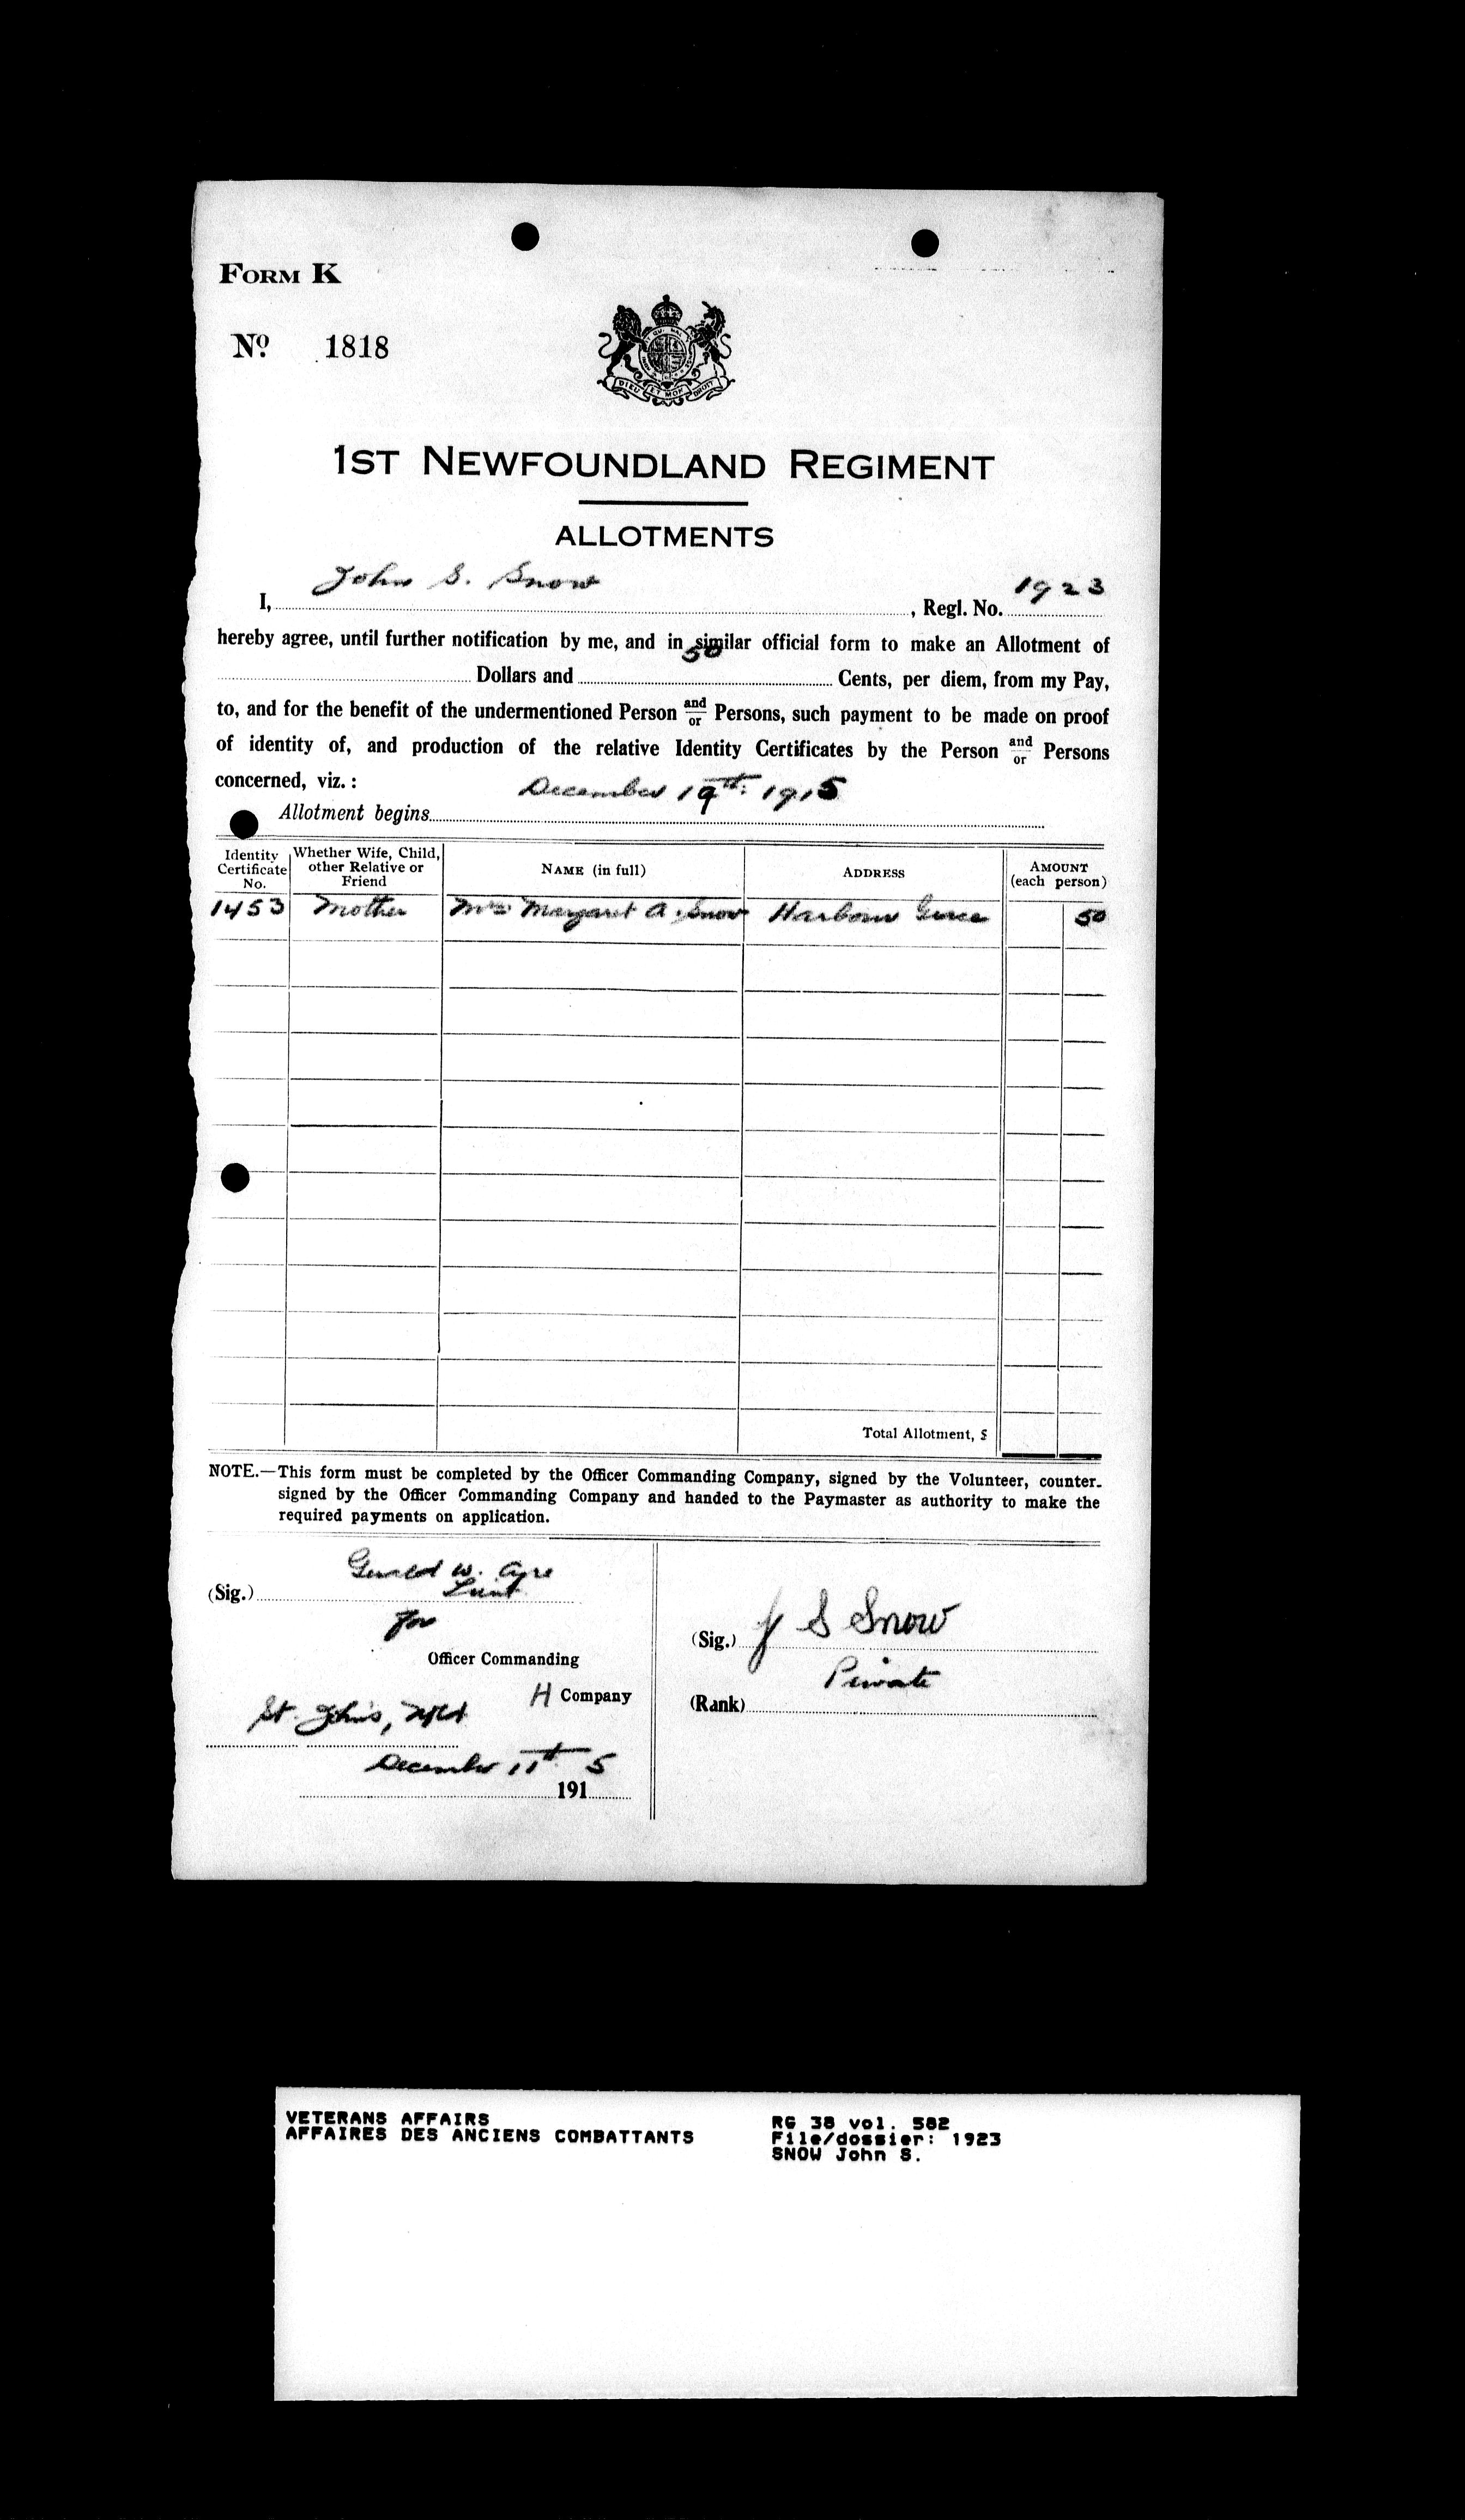 FORM K
No. 1818
DIEU ET MON DROIT
1ST NEWFOUNDLAND REGIMENT
ALLOTMENTS
I, John S. Snow, Regl. No. 1923
hereby agree, until further notification by me, and in similar official form to make an Allotment of
Dollars and 50 Cents, per diem, from my Pay,
to, and for the benefit of the undermentioned Person and/or Persons, such payment to be made on proof
of identity of, and production of the relative Identity Certificates by the Person and/or Persons
concerned, viz.:
Allotment begins December 19th 1915
Identity Certificate No. Whether Wife, Child, other Relative or Friend NAME (in full) ADDRESS AMOUNT (each person)
1453 Mother Mrs Margaret A. Snow Harbour Grace 50
Total Allotment, $
NOTE.—This form must be completed by the Officer Commanding Company, signed by the Volunteer, counter-
signed by the Officer Commanding Company and handed to the Paymaster as authority to make the
required payments on application.
(Sig.) Gerald W. Ayre
Lieut
for
Officer Commanding
H Company
St. John's, Nfld
December 11th 1915
(Sig.) J S Snow
(Rank) Private
VETERANS AFFAIRS
AFFAIRES DES ANCIENS COMBATTANTS
RG 38 vol. 582
File/dossier: 1923
SNOW John S.